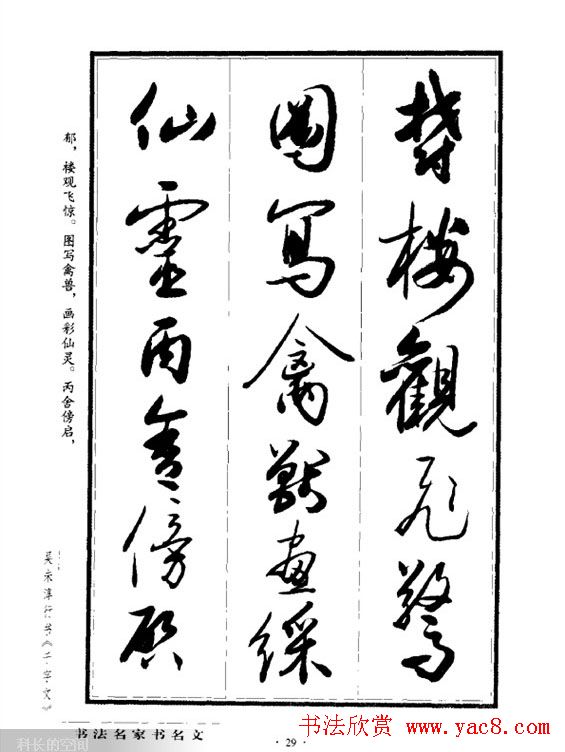 鬱樓觀飛驚
圖寫禽獸畫綵
仙靈丙舍傍啟
郁，楼观飞惊。图写禽兽，画彩仙灵。丙舍傍启，
吴未淳行书《千字文》
书法名家书名文
·29·
书法欣赏 www.yac8.com
科长的空间